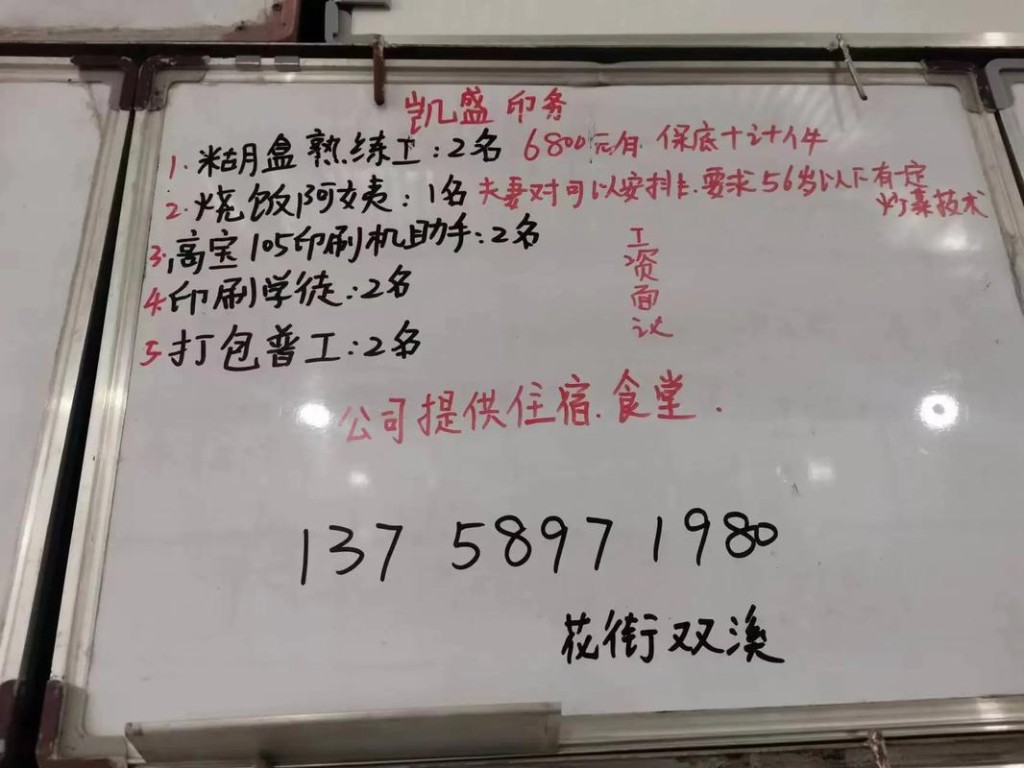 凯盛印务
1. 粘胡盒熟练工:2名 6800元/月 保底+计件
2. 烧饭阿姨:1名 夫妻对可以安排.要求56岁以下有一定
炒菜技术
3. 高宝105印刷机助手:2名
4. 印刷学徒:2名
5 打包普工:2名
工资面议
公司提供住宿.食堂.
137 5897 1980
花街双溪